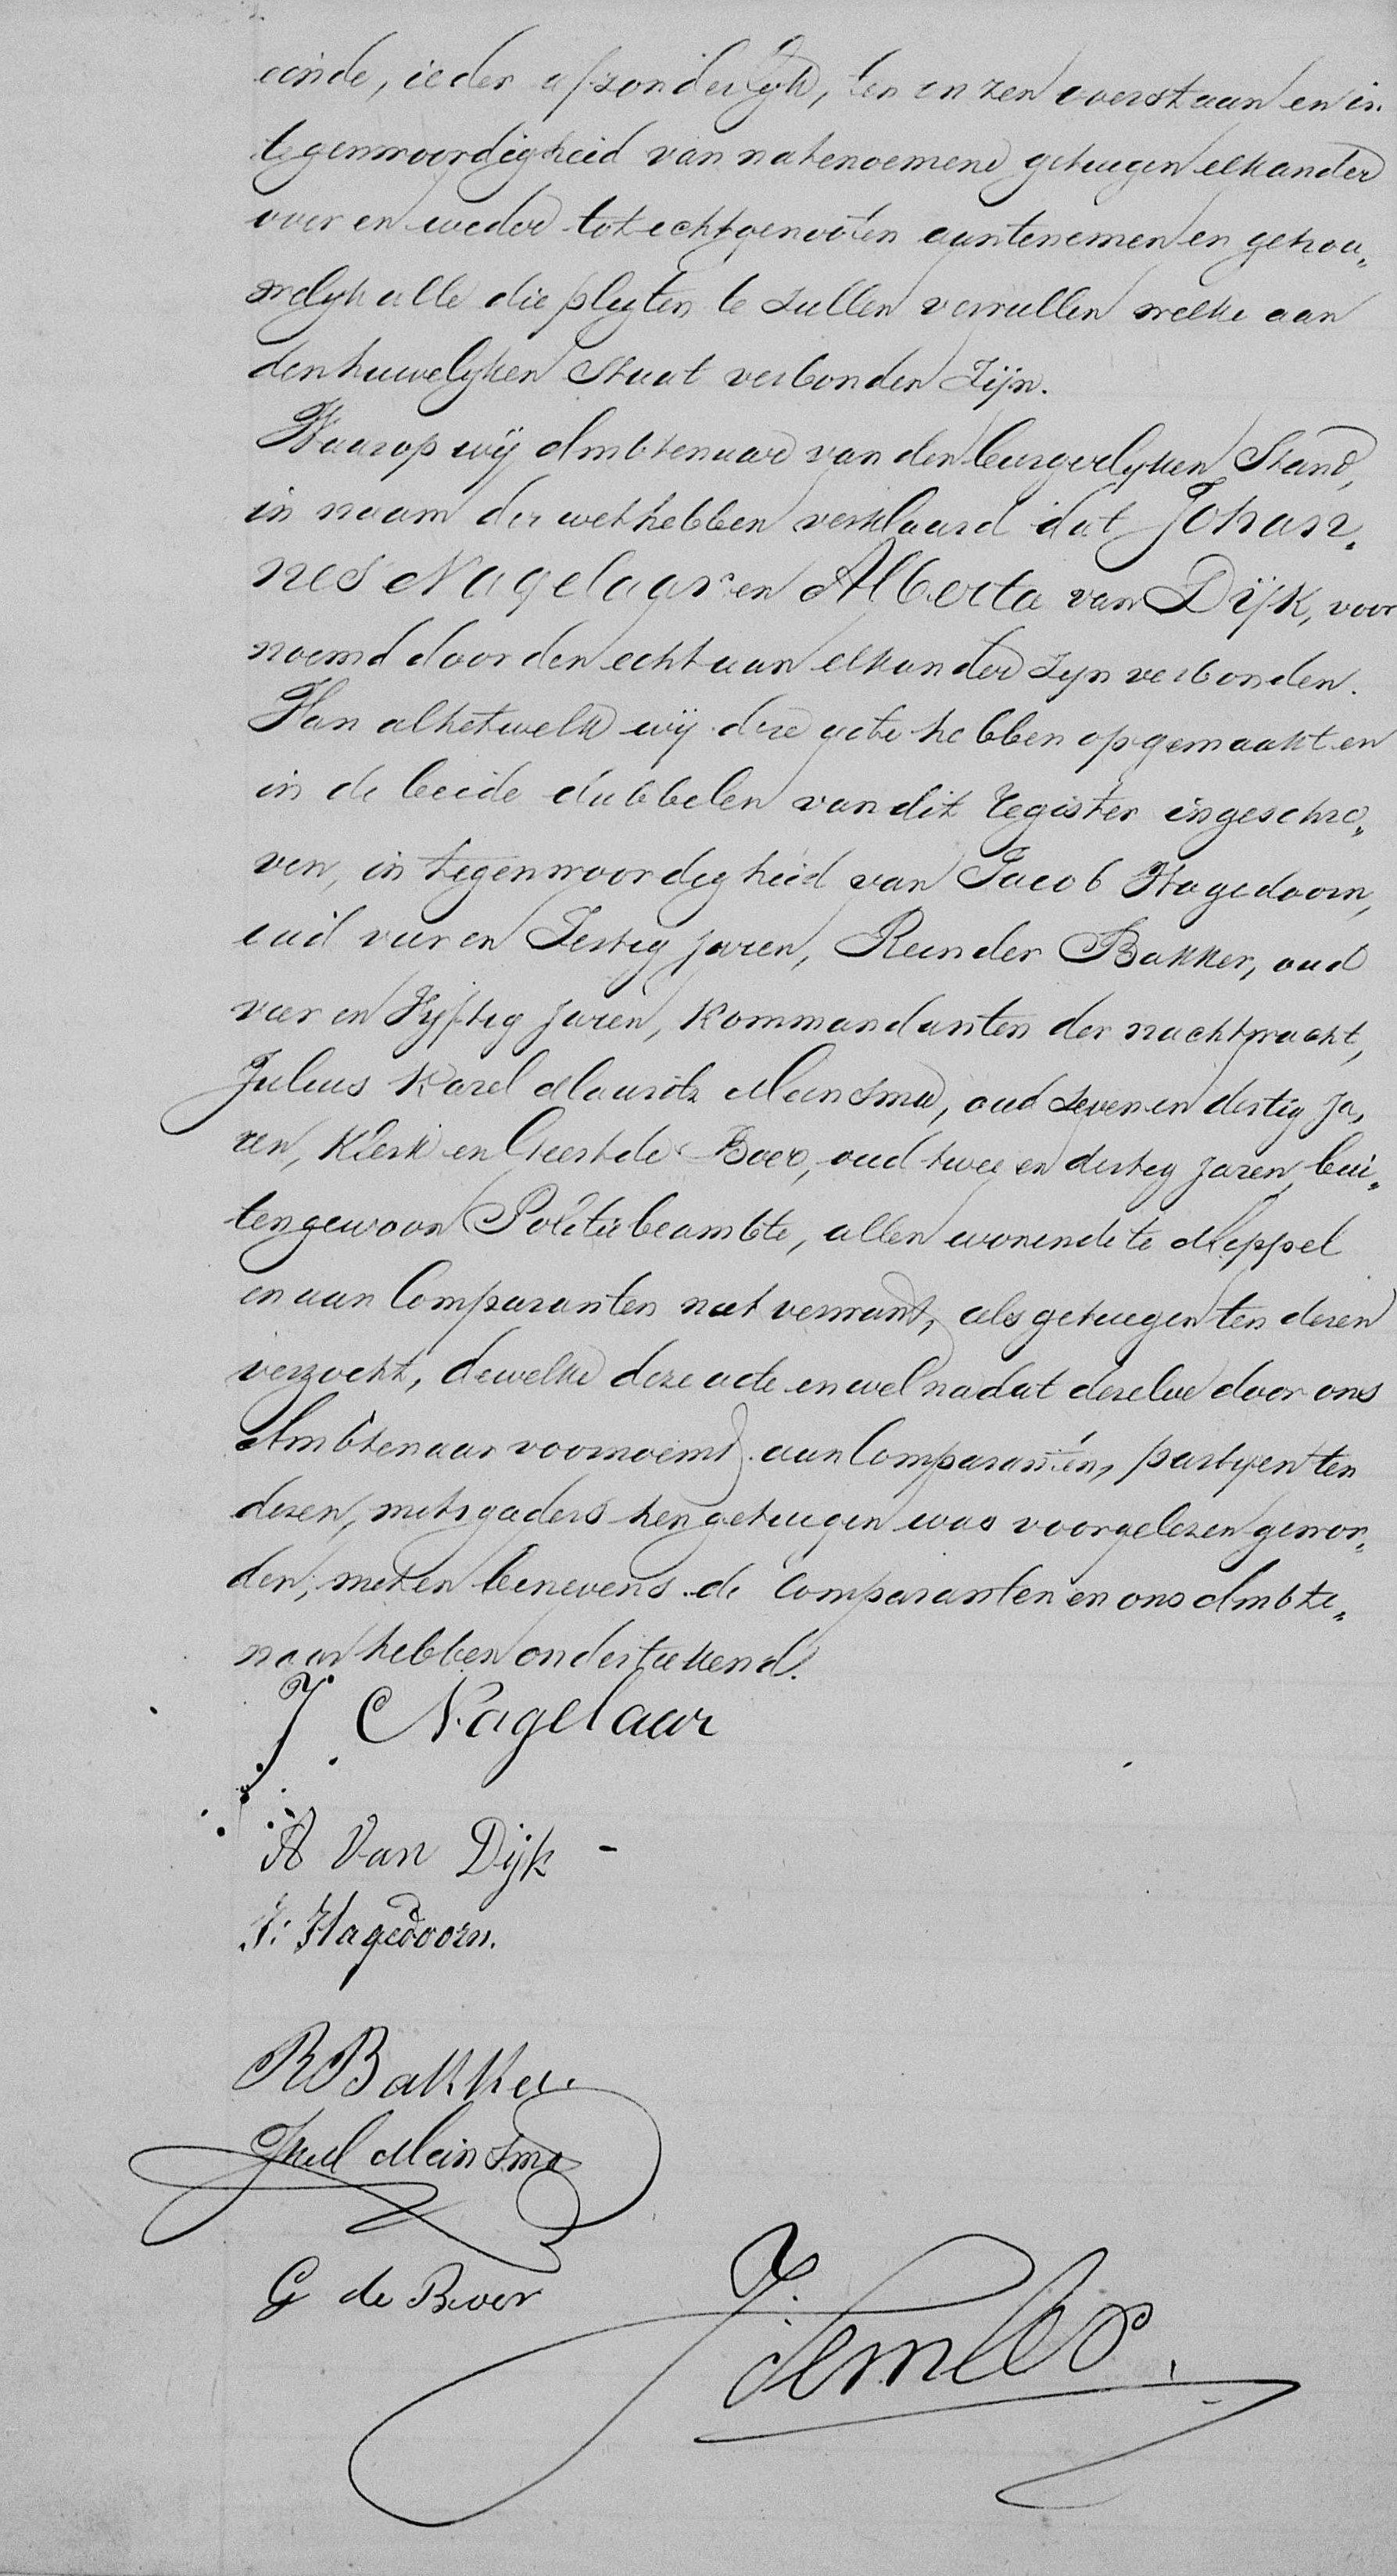 einde, ieder afzonderlyk, ten onzen overstaan en in
tegenwoordigheid van natenoemene getuigen elkander
over en weder tot echtgenooten aantenemen en getrou„
welyk alle die plegten te zullen vervullen welke aan
den huwelyken Staat verbonden Zijn.
Waarop wij Ambtenaar van den burgerlyken Stand,
in naam der wet hebben verklaard dat Johan„
nes Nagelaar en Alberta van Dijk, voor
noemd door den echt aan elkander zyn verbonden.
Van al hetwelk wij deze acte hebben opgemaakt en
in de beide dubbelen van dit register ingeschre„
ven, in tegenwoordigheid van Jacob Hagedoorn,
oud vier en Zestig jaren, Reinder Bakker, oud
vier en Vyftig jaren, Kommandanten der nachtwacht,
Julius Karel Maurits Meinsma, oud Zeven en dertig ja„
ren, Klerk en Geert de Boer, oud twee en dertig jaren, bui„
tengewoon Politiebeambte, allen wonende te Meppel
en aan Comparanten niet verwant, als getuigen ten dezen
verzocht, dewelke deze acte en wel nadat dezelve door ons
Ambtenaar voornoemd aan Comparanten, partyen ten
dezen, mitsgaders hen getuigen was voorgelezen gewor„
den, met en benevens de Comparanten en ons Ambte„
naar hebben ondertekend.
J Nagelaar
A Van Dijk -
J: Hagedoorn.
R Bakker
Meinsma
G de Boer